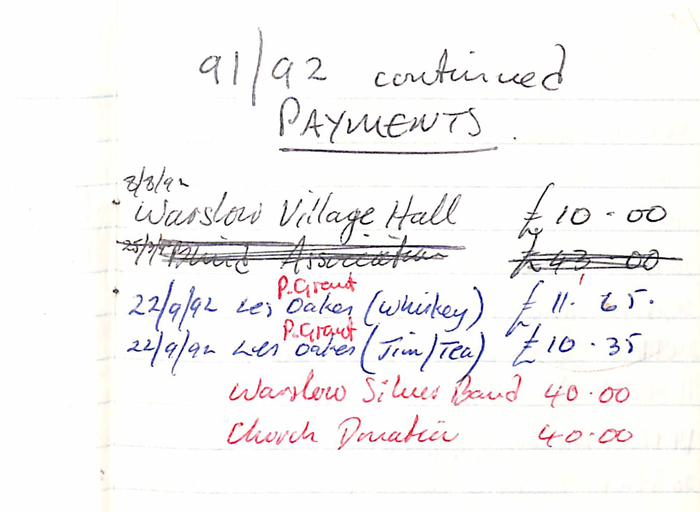 91/92 continued
PAYMENTS.
8/8/92
Warslow Village Hall £10-00
Blind Association £43-00
P.Grant
22/9/92 Les Oakes (Whiskey) £11.65.
P.Grant
22/9/92 Les Oakes (Jim/Tea) £10.35
Warslow Silver Band 40.00
Church Donation 40.00